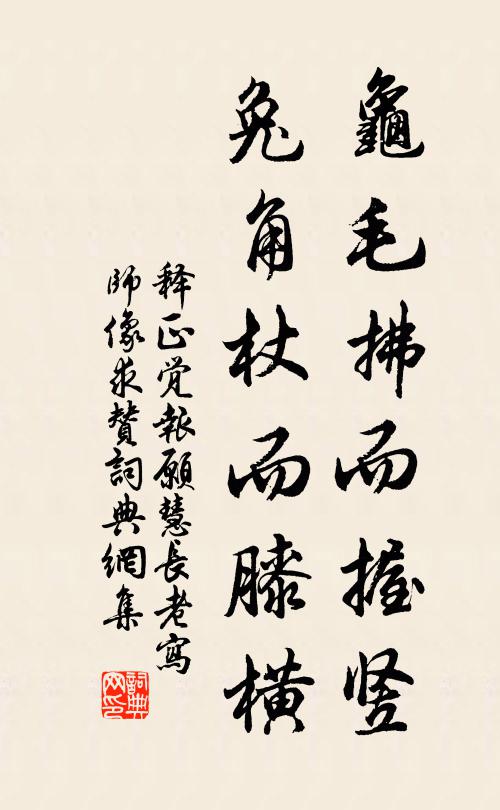 龜毛拂而握竖
兔角杖而膝横
释正觉報願慧長老寫
師像求贊詞典網集
詞典网印